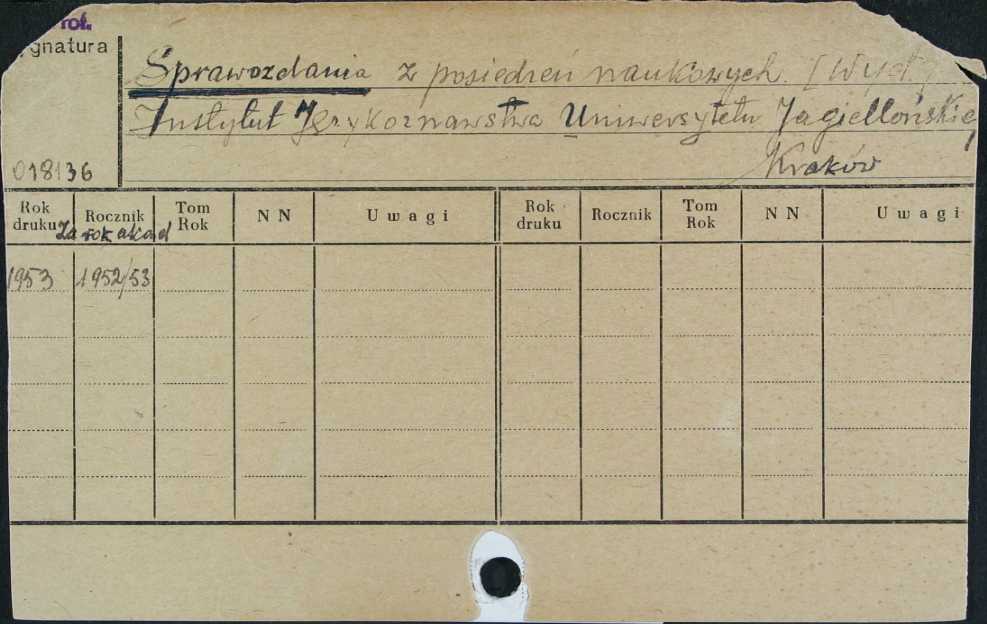 rof.
ygnatura
Sprawozdania z posiedzeń naukowych. [Wyd.]
Instytut Językoznawstwa Uniwersytetu Jagiellońskiego
Kraków
018136
Rok druku Rocznik Tom Rok NN Uwagi Rok druku Rocznik Tom Rok NN Uwagi
Za rok akad
1953 1952/53